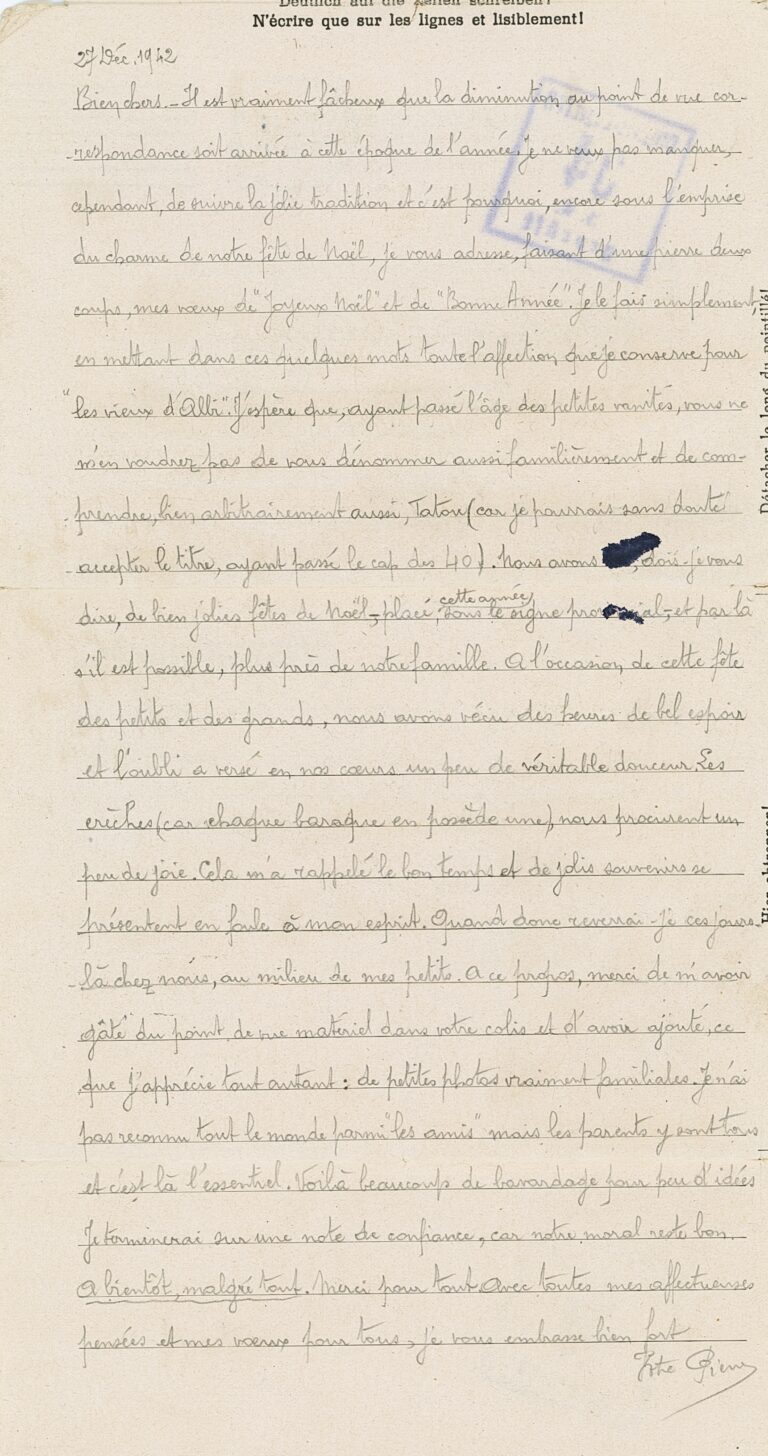 Deutlich auf die Zeilen schreiben!
N'écrire que sur les lignes et lisiblement!
27 Déc. 1942
Bien chers. - Il est vraiment fâcheux que la diminution au point de vue cor-
-respondance soit arrivée à cette époque de l'année. Je ne veux pas manquer,
cependant, de suivre la jolie tradition et c'est pourquoi, encore sous l'emprise
du charme de notre fête de Noël, je vous adresse, faisant d'une pierre deux
coups, mes vœux de "Joyeux Noël" et de "Bonne Année". Je le fais simplement,
en mettant dans ces quelques mots toute l'affection que je conserve pour
"les vieux d'Albi". J'espère que, ayant passé l'âge des petites vanités, vous ne
m'en voudrez pas de vous dénommer aussi familièrement et de com-
-prendre, bien arbitrairement aussi, Tatou (car je pourrais sans doute
accepter le titre, ayant passé le cap des 40). Nous avons, dois-je vous
dire, de bien jolies fêtes de Noël, - placé cette année, sous le signe provincial, - et par là
s'il est possible, plus près de notre famille. A l'occasion de cette fête
des petits et des grands, nous avons vécu des heures de bel espoir
et l'oubli a versé en nos cœurs un peu de véritable douceur. Les
crèches (car chaque baraque en possède une), nous procurent un
peu de joie. Cela m'a rappelé le bon temps et de jolis souvenirs se
présentent en foule à mon esprit. Quand donc reverrai-je ces jours
-là chez nous, au milieu de mes petits. A ce propos, merci de m'avoir
gâté du point de vue matériel dans votre colis et d'avoir ajouté, ce
que j'apprécie tout autant : de petites photos vraiment familiales. Je n'ai
pas reconnu tout le monde parmi "les amis" mais les parents y sont tous
et c'est là l'essentiel. Voilà beaucoup de bavardage pour peu d'idées
Je terminerai sur une note de confiance, car notre moral reste bon.
A bientôt, malgré tout. Merci pour tout. Avec toutes mes affectueuses
pensées et mes vœux pour tous, je vous embrasse bien fort
Votre Pierre
Détacher le long du pointillé!
Hier abtrennen!